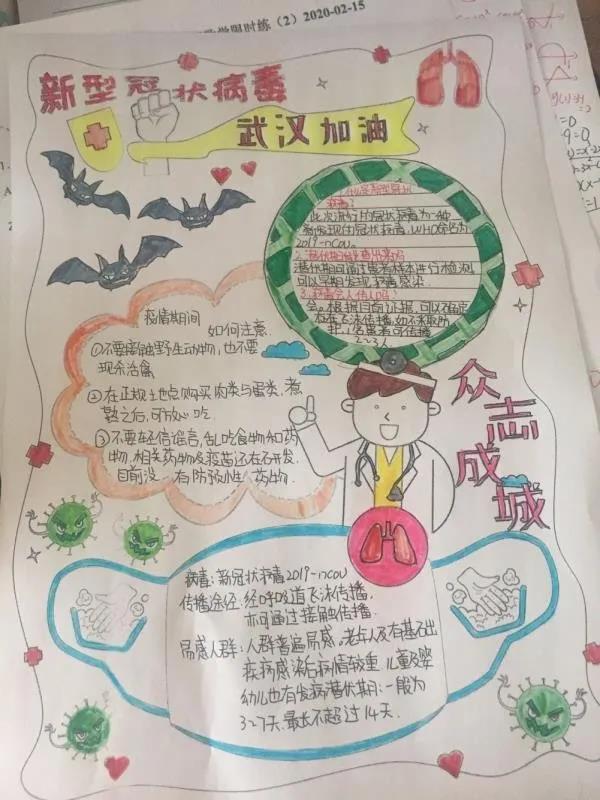 学限时练（2）2020-02-15
新型冠状病毒
武汉加油
病毒？
此次流行的冠状病毒为一种
新发现的冠状病毒，WHO命名为
2019-nCoV。
潜伏期可通过患者样本进行检测
可以早期发现，病毒感染
3.病毒会人传人吗？
会。根据目前证据，可以确定
护，1名患者可传播
2~3人
疫情期间
如何注意
①不要接触野生动物，也不要
现杀活禽
②在正规土地点购买肉类与蛋类，煮
熟之后，可放心吃
③不要轻信谣言，乱吃食物和药
物，相关药物及疫苗还在研发．
目前没一有防预的药物．
众志成城
病毒：新冠状病毒2019-ncov
传播途径：经呼吸道飞沫传播，
亦可通过接触传播．
易感人群：人群普遍易感。老年人及有基础
疾病感染后病情较重，儿童及婴
幼儿也有发病潜伏期：一般为
3~7天，最长不超过14天．